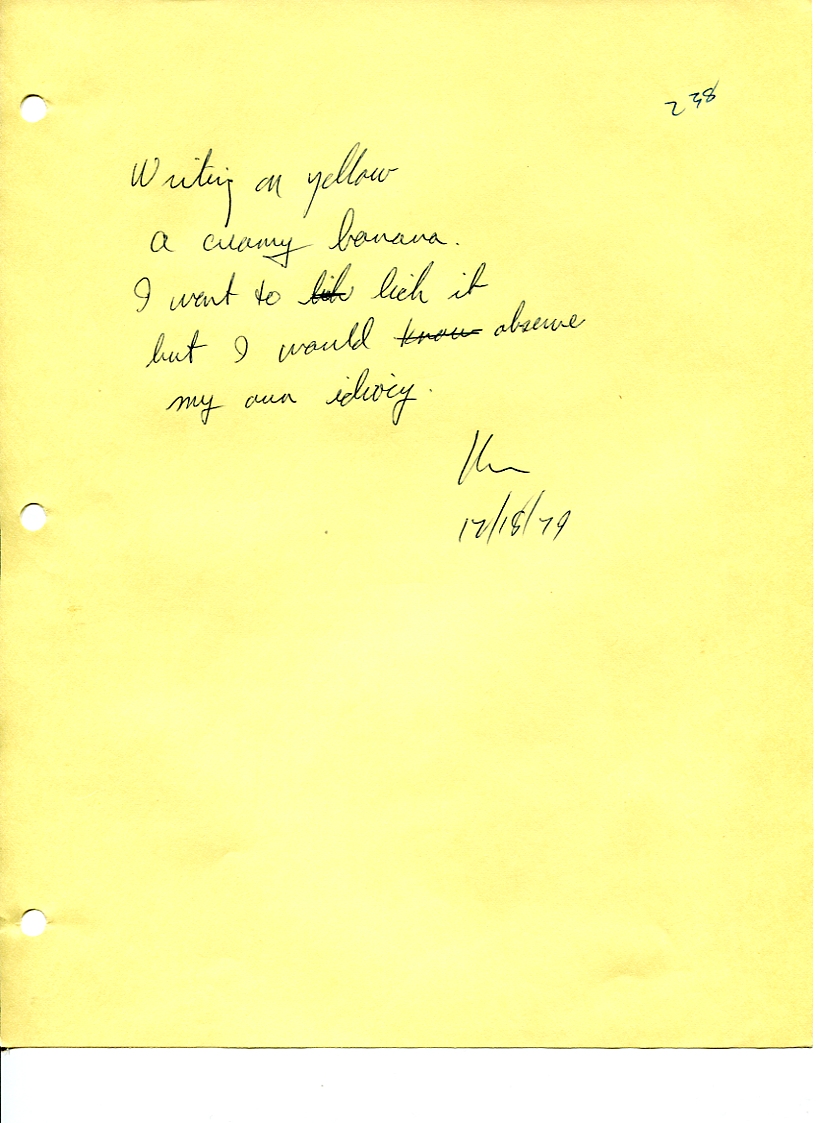 238
Writing on yellow
a creamy banana.
I want to lick it
but I would know observe
my own idiocy.
12/18/79